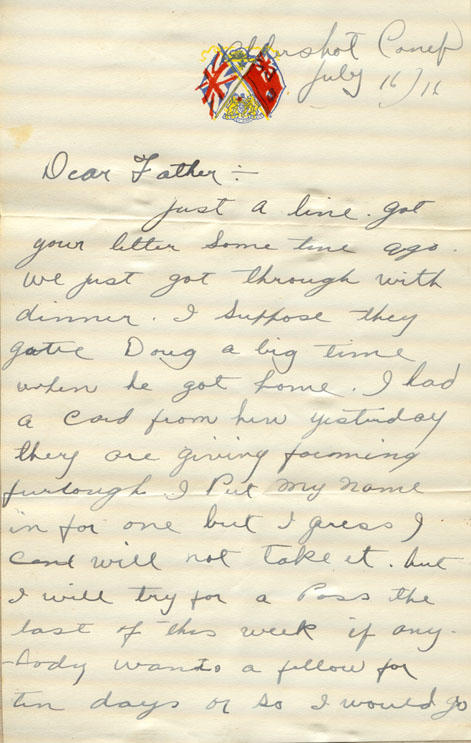 Aldershot Camp
July 16/16
Dear Father :-
just a line. got
your letter some time ago.
we just got through with
dinner. I suppose they
gave Doug a big time
when he got home. I had
a card from him yesterday
they are giving farming
furlough. I Put My Name
in for one but I guess I
will not take it. but
I will try for a Pass the
last of this week if any-
body wants a fellow for
ten days or so I would go